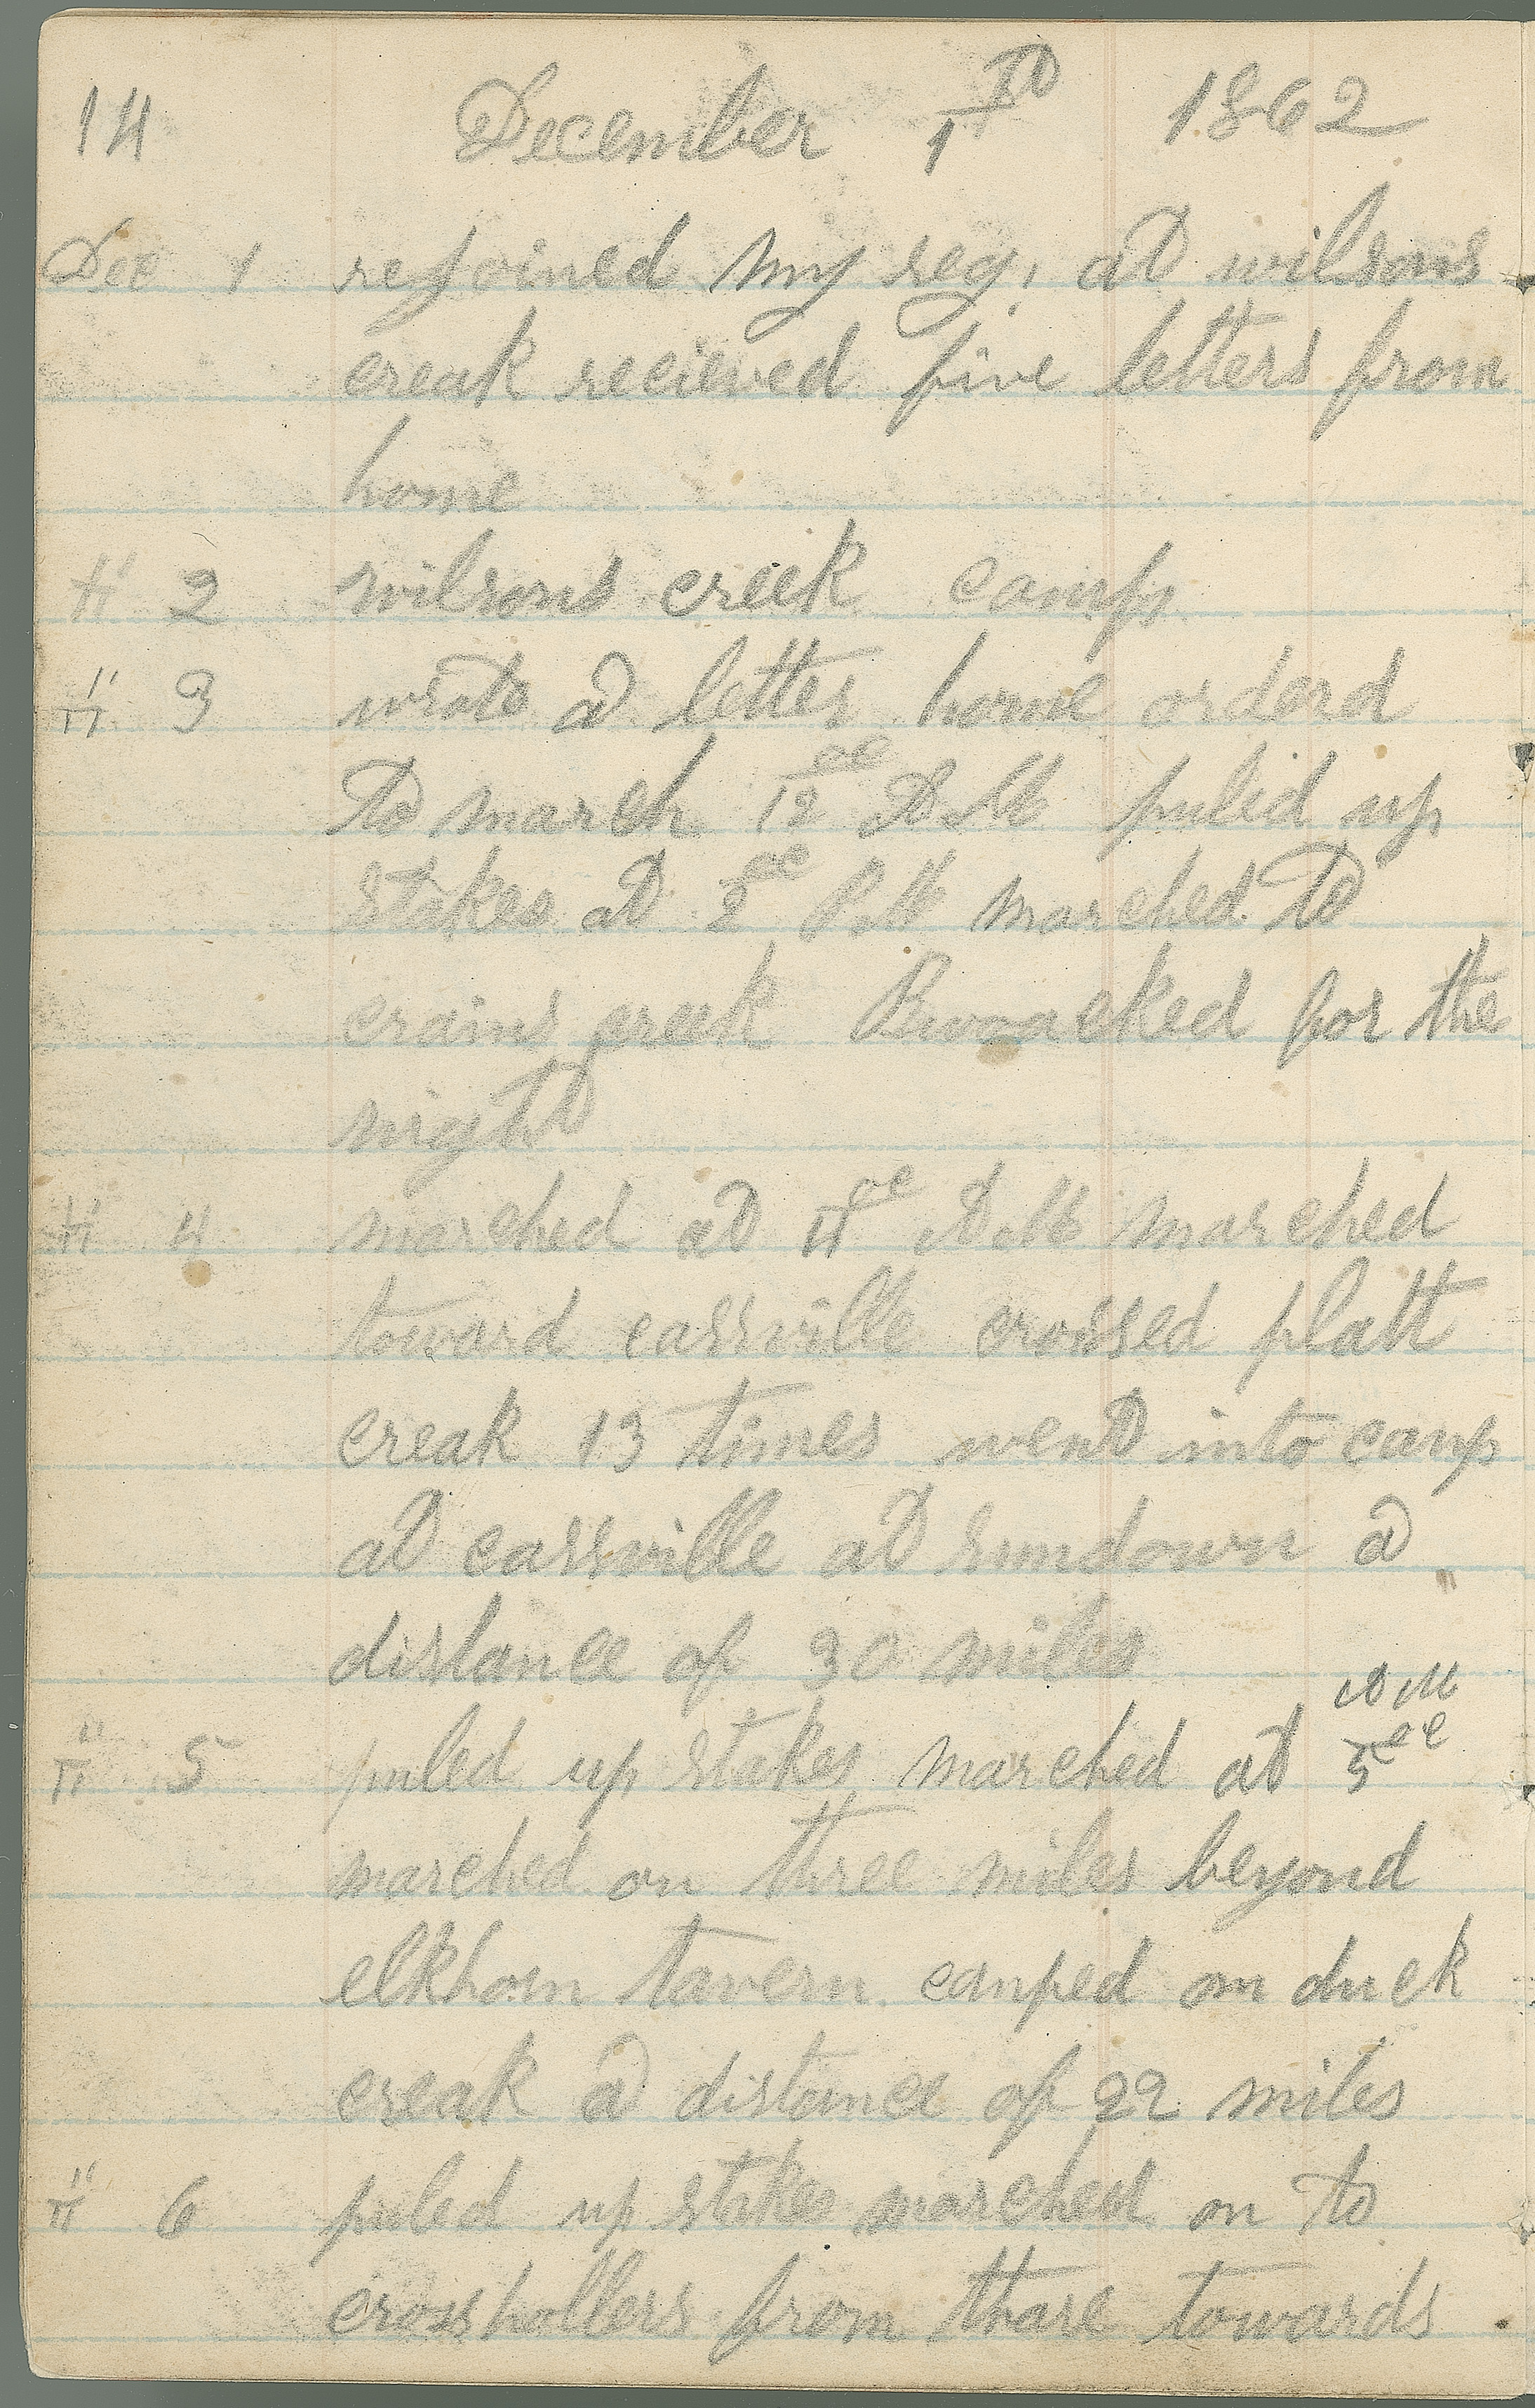 14 December 1st 1862
Dec 1 rejoined my reg, at wilsons
creak recieved five letters from
home
" 2 wilsons creek camp
" 3 wrote a letter home orderd
to march 12 oc A M puled up
stakes at 2 oc P. M marched to
crains creek Bivoacked for the
night
" 4 marched at 4 oc A M marched
toward cassville crossed flatt
creak 13 times went into camp
at cassville at sundown a
distance of 30 miles
A M
" 5 puled up stakes marched at 5 oc
marched on three miles beyond
elkhorn tavern camped on duck
creak a distance of 22 miles
" 6 puled up stakes marched on to
cross hollers from thare towards